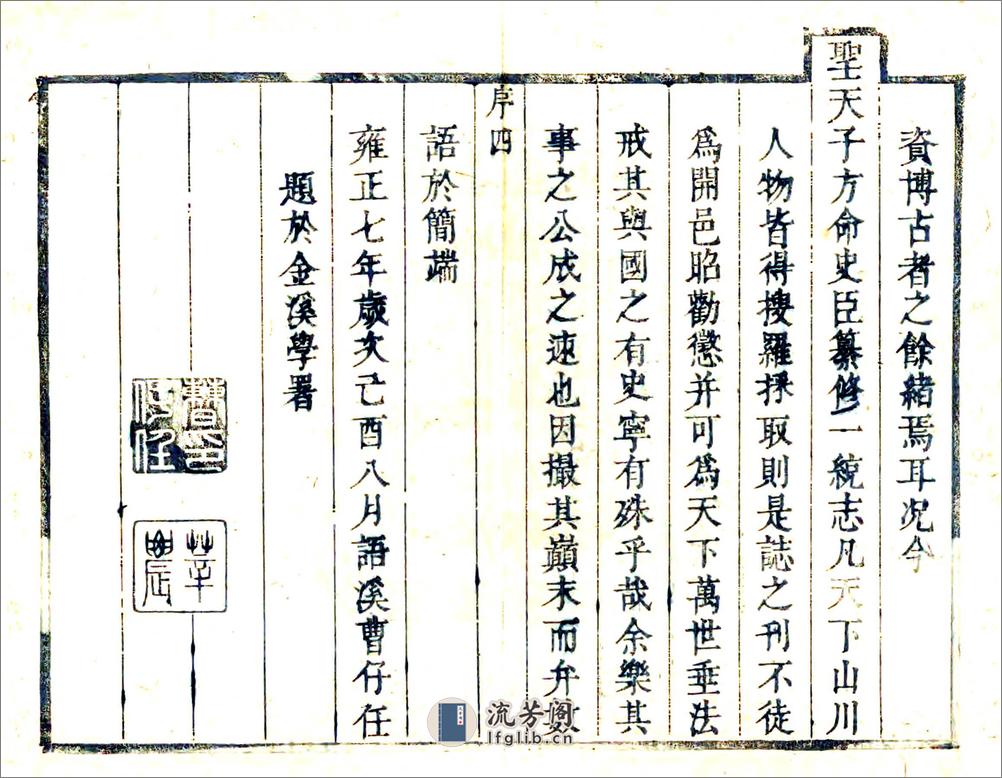 資博古者之餘緒焉耳况今
聖天子方命史臣纂修一統志凡天下山川
人物皆得搜羅採取則是誌之刊不徒
爲開邑昭勸懲并可爲天下萬世垂法
戒其與國之有史寧有殊乎哉余樂其
事之公成之速也因撮其巔末而弁數
序四
語於簡端
雍正七年歲次己酉八月語溪曹仔任
題於金溪學署
曹印仔任
莘農
流芳阁
lfglib.cn